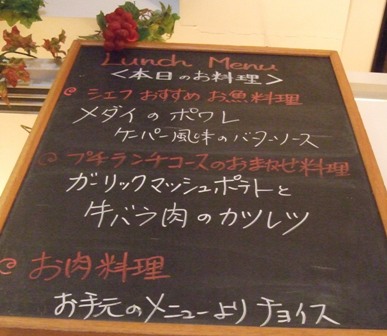 Lunch Menu
<本日のお料理>
シェフおすすめお魚料理
メダイのポワレ
ケーパー風味のバターソース
プチランチコースのおまかせ料理
ガーリックマッシュポテトと
牛バラ肉のカツレツ
お肉料理
お手元のメニューよりチョイス